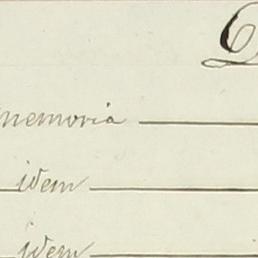 memoria
idem
idem